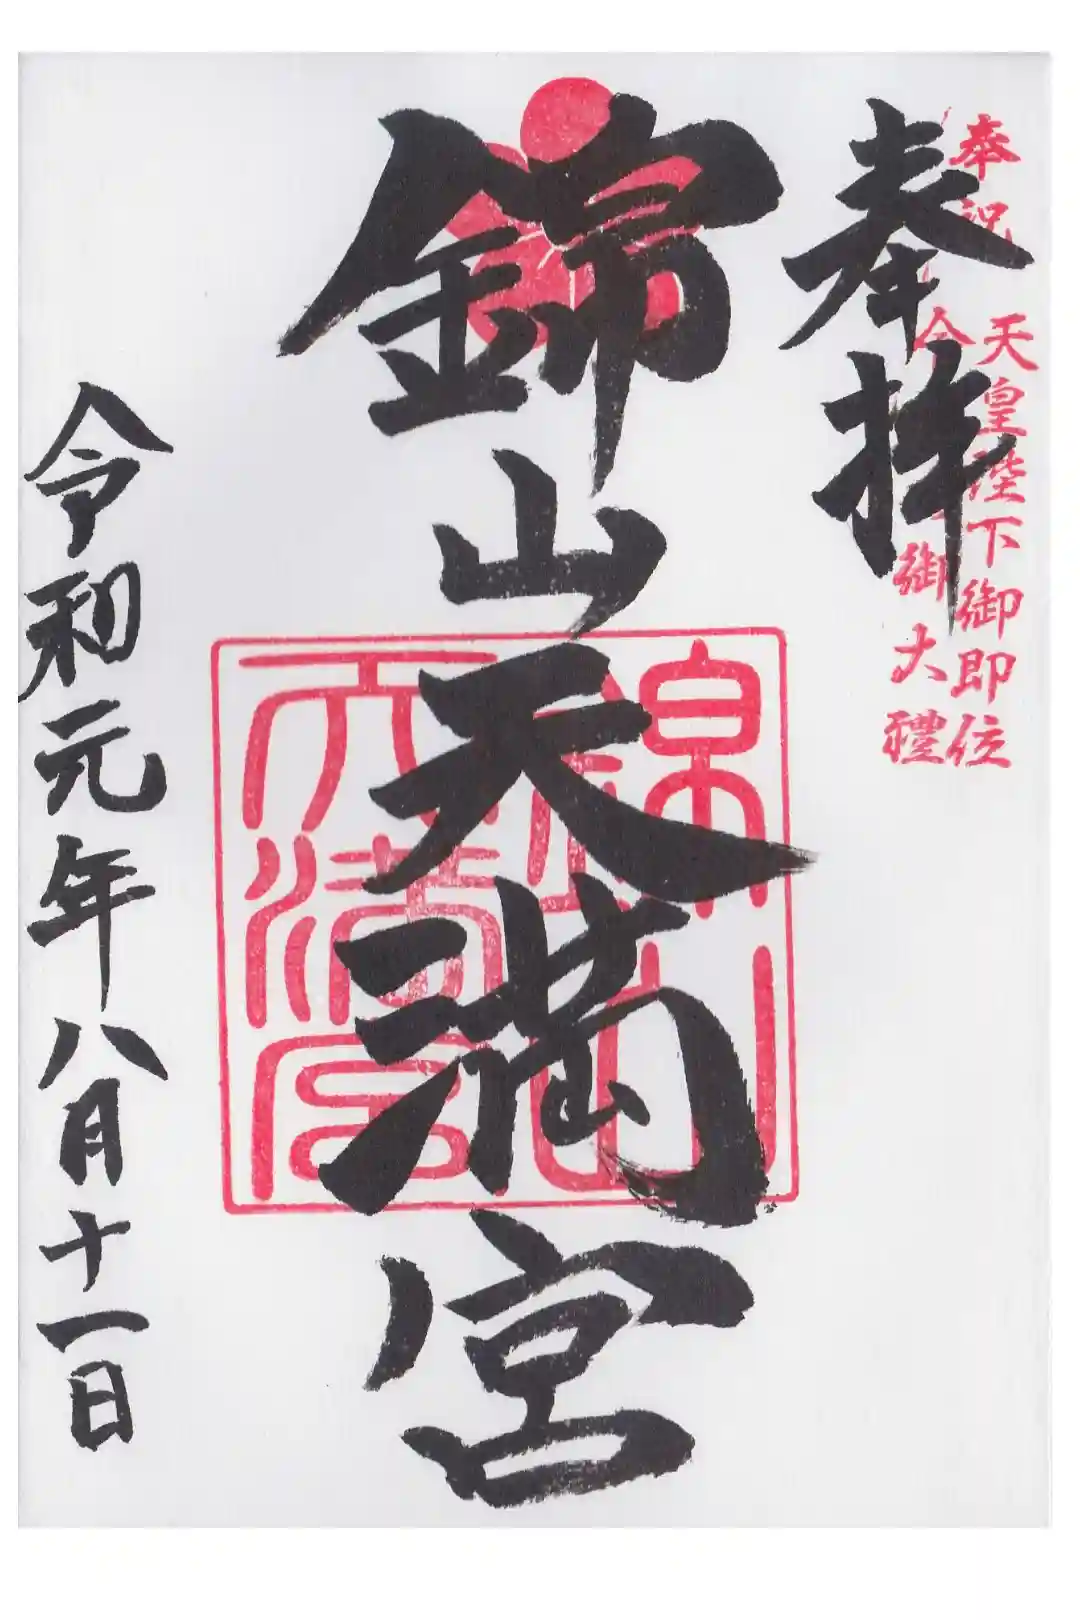 奉祝
天皇陛下御即位
今 御大禮
奉拝
錦山天満宮
錦山
天満宮
令和元年八月十一日